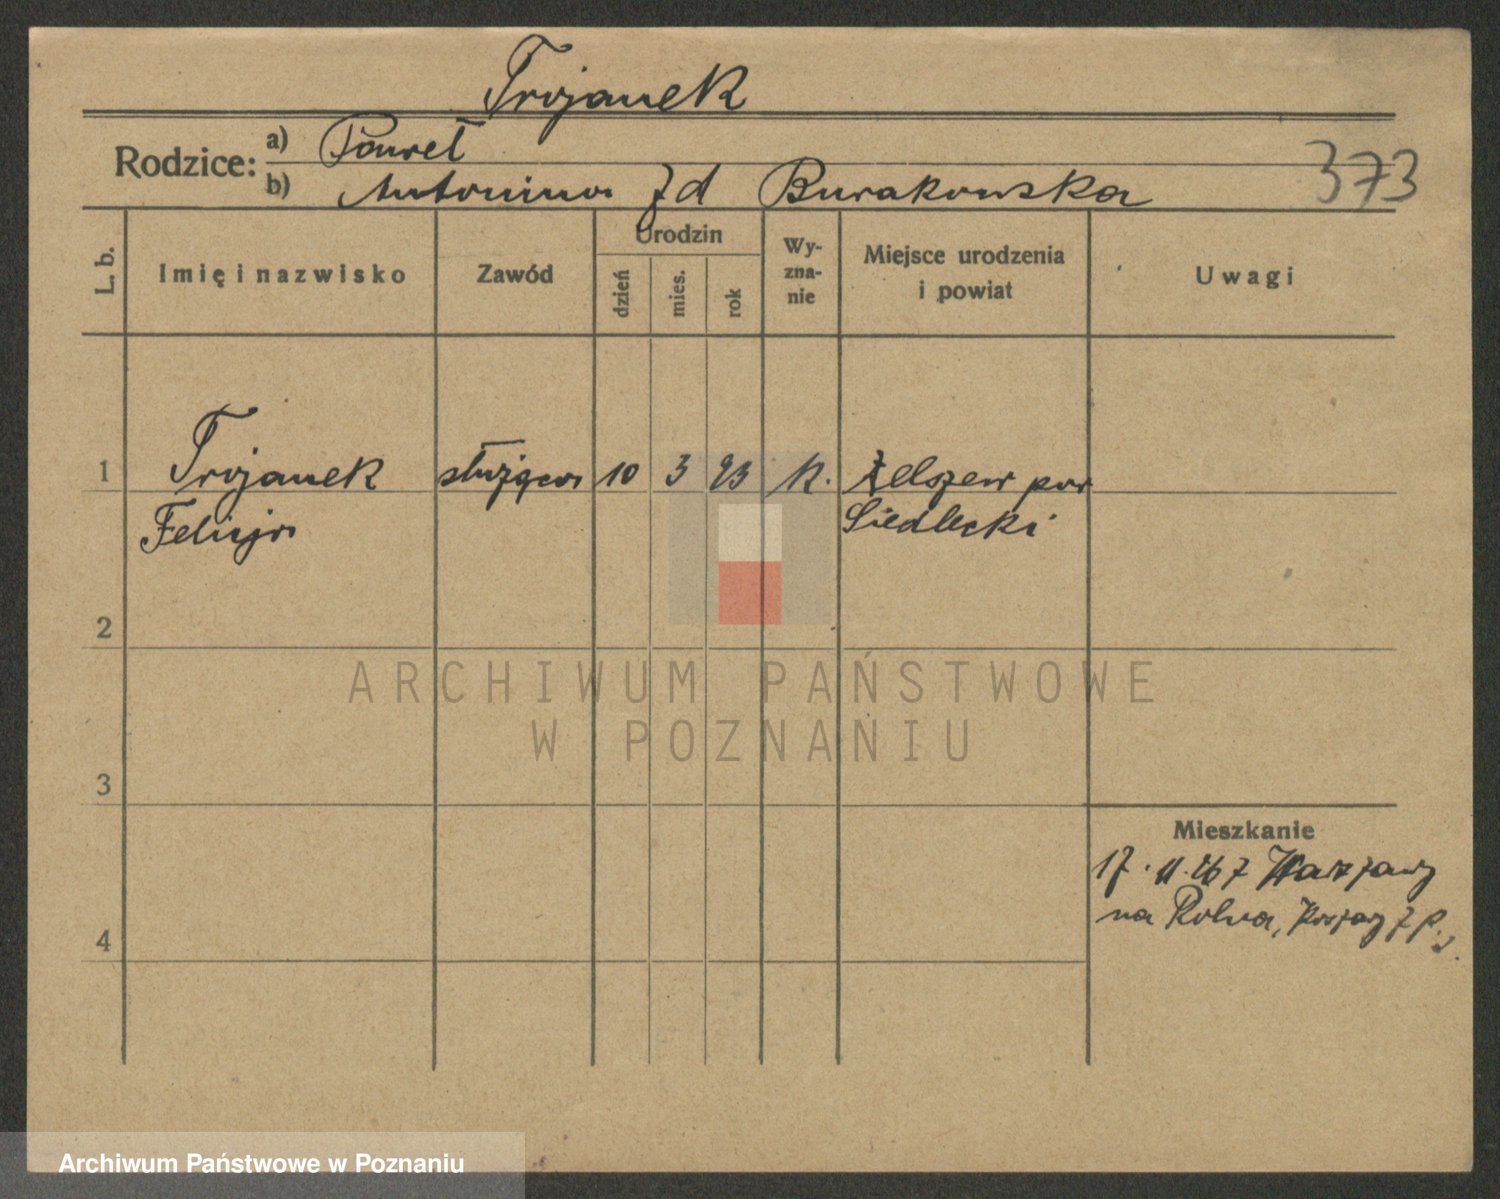 Trojanek
Rodzice: a) Paweł
b) Antonina zd Burakowska
373
L. b. Imię i nazwisko Zawód Urodzin dzień mies. rok Wy-zna-nie Miejsce urodzenia i powiat Uwagi
1 Trojanek służąca 10 3 93 k. pow
Felicja Siedlecki
2
ARCHIWUM PAŃSTWOWE
W POZNANIU
3
Mieszkanie
17. 11. z Warszawy
4 na Rolna,
Archiwum Państwowe w Poznaniu